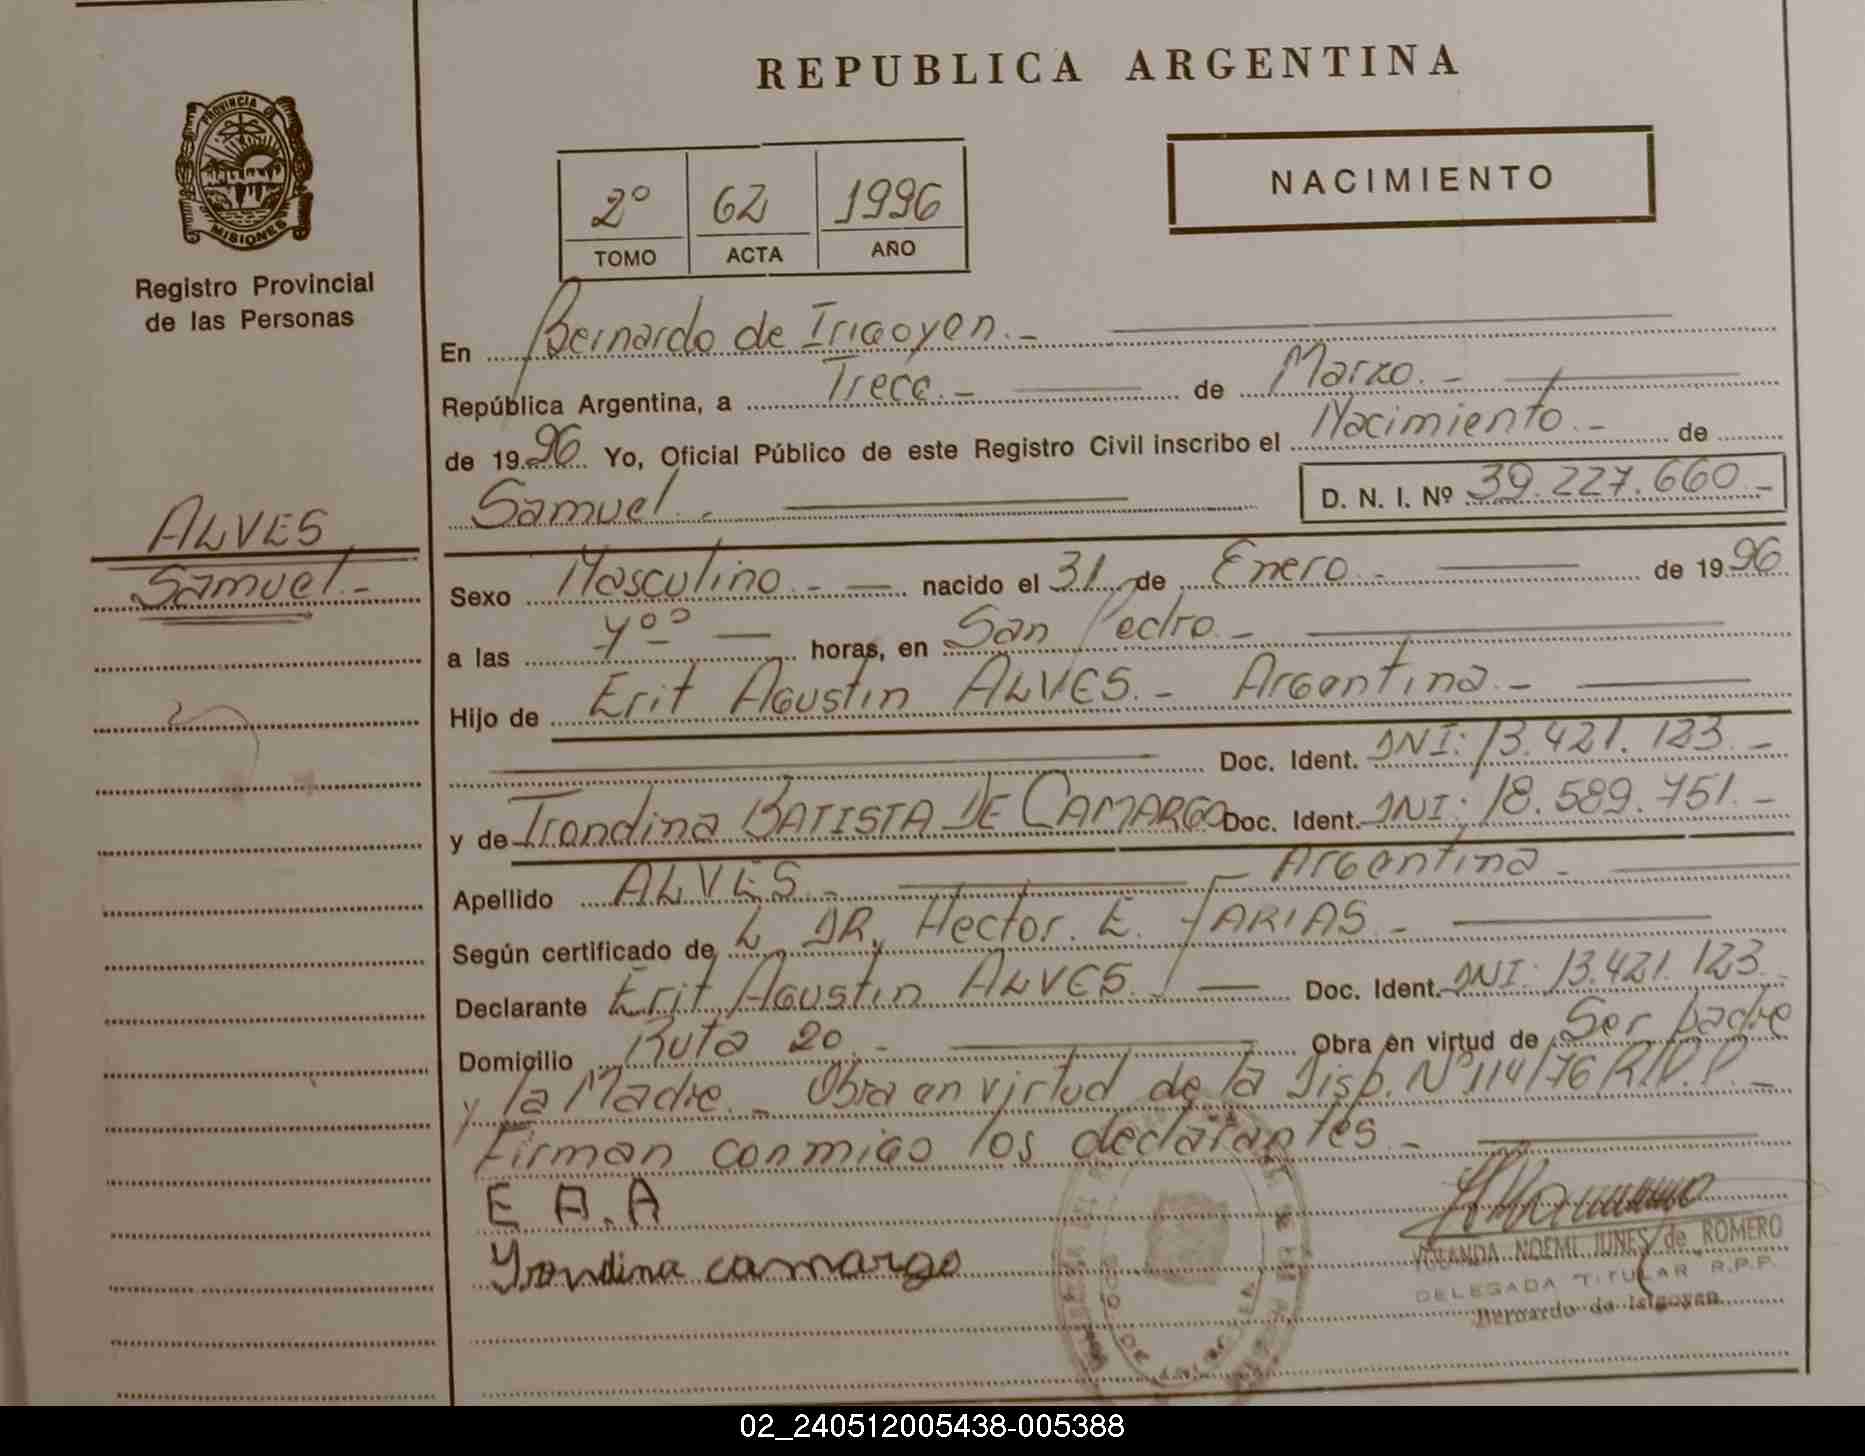 REPUBLICA ARGENTINA
PROVINCIA DE
MISIONES
Registro Provincial
de las Personas
NACIMIENTO
2º 62 1996
TOMO ACTA AÑO
En Bernardo de Irigoyen.-
República Argentina, a Trece.- de Marzo.-
de 1996 Yo, Oficial Público de este Registro Civil inscribo el Nacimiento.- de
Samuel.- D. N. I. Nº 39.227.660.-
ALVES
Samuel.-
Sexo Masculino.- nacido el 31 de Enero.- de 1996
a las 4º⁰ horas, en San Pedro.-
Hijo de Erit Agustin ALVES.- Argentina.-
Doc. Ident. DNI: 13.421.123.-
y de Irondina BATISTA DE CAMARGO Doc. Ident. DNI: 18.589.751.-
Argentina.-
Apellido ALVES.-
Según certificado de L. DR. Hector. E. FARIAS.-
Declarante Erit Agustin ALVES. Doc. Ident. DNI: 13.421.123.-
Domicilio Ruta 20.- Obra en virtud de Ser padre
y la Madre.- Obra en virtud de la Disp. Nº 114/76 R.P.P.-
Firman conmigo los declarantes.-
E A.A
Yrondina camargo
NOEMI JUNES de ROMERO
DELEGADA TITULAR R.P.P.
Bernardo de Irigoyen
02_240512005438-005388